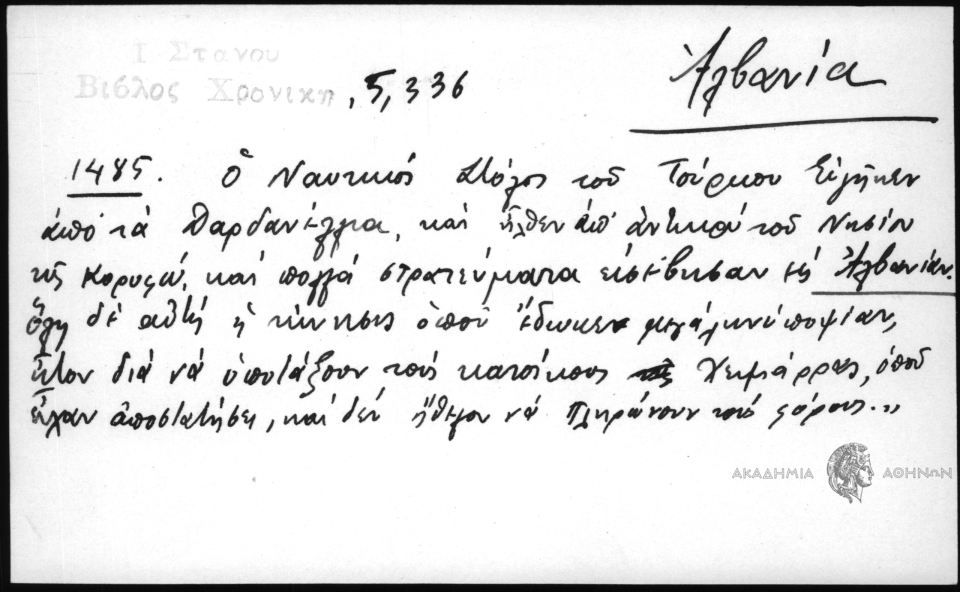 Ι Στανου
Βιβλος Χρονικη, 5, 336
Ἀλβανία
1485. Ὁ Ναυτικός Στόλος τοῦ Τούρκου Εὐγῆκεν
ἀπό τά Δαρδανέλλια, καί ἦλθεν ἀπ' ἀντικρύ τοῦ Νησίου
τῆς Κορυφῶ, καί πολλά στρατεύματα εἰσέβησαν εἰς Ἀλβανίαν.
ὅλη δέ αὐτή ἡ κίνησις ὁποῦ ἔδωκεν μεγάλην ὑποψίαν,
ἦτον διά νά ὑποτάξουν τούς κατοίκους Χειμάρρας, ὁποῦ
εἶχαν ἀποστατήσει, καί δέν ἤθελον νά πληρώνουν τούς φόρους.»
ΑΚΑΔΗΜΙΑ ΑΘΗΝΩΝ